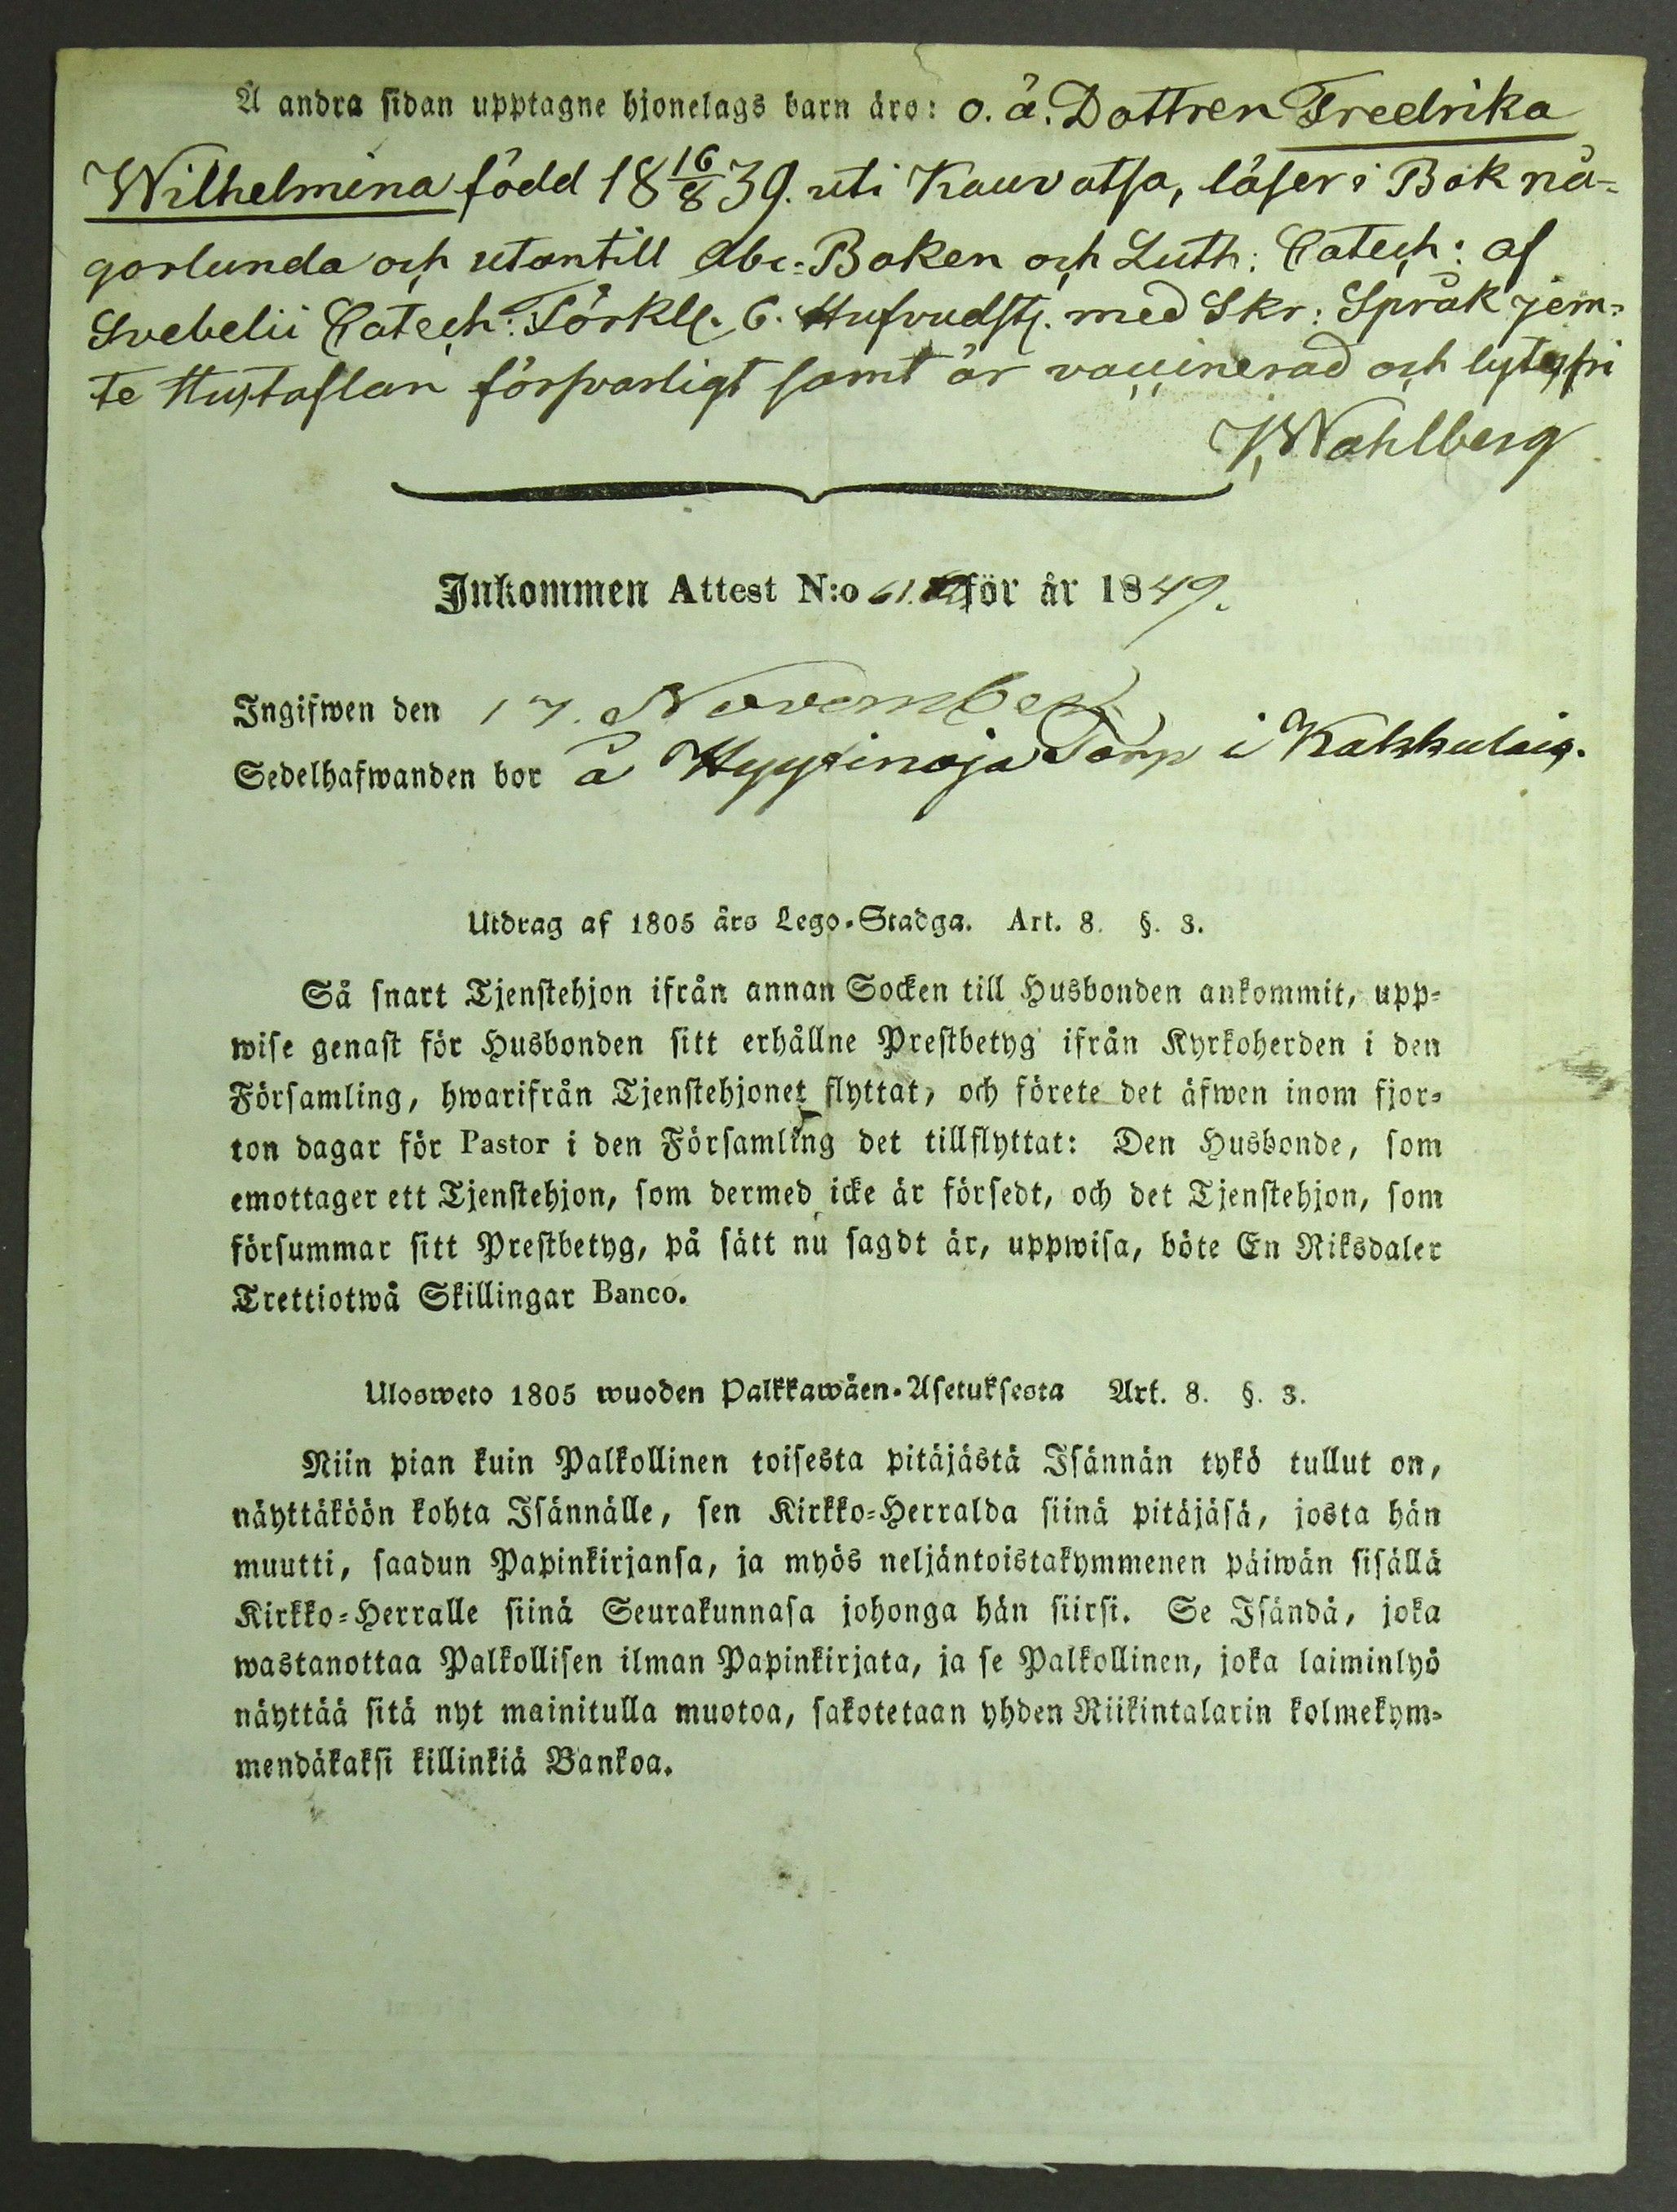 Å andra sidan upptagne hjonelags barn äro: o. ä. Dottren Fredrika
Wilhelmina född 18 16/8 39. uti Kauvatsa, läser i Bok nå-
gorlunda och utantill Abc-Boken och Luth: Catech: af
Svebelii Catech: Förkl. 6. Hufvudst. med Skr: Språk jem-
te Hustaflan försvarligt samt är vaccinerad och lytesfri
Wahlberg
Inkommen Attest N:o 61. för år 1849.
Ingifwen den 17. November
Sedelhafwanden bor å Torp i Kakkulais.
Utdrag af 1805 års Lego-Stadga. Art. 8. §. 3.
Så snart Tjenstehjon ifrån annan Socken till Husbonden ankommit, upp-
wise genast för Husbonden sitt erhållne Prestbetyg ifrån Kyrkoherden i den
Församling, hwarifrån Tjenstehjonet flyttat, och förete det äfwen inom fjor-
ton dagar för Pastor i den Församling det tillflyttat: Den Husbonde, som
emottager ett Tjenstehjon, som dermed icke är försedt, och det Tjenstehjon, som
försummar sitt Prestbetyg, på sätt nu sagdt är, uppwisa, böte En Riksdaler
Trettiotwå Skillingar Banco.
Ulosweto 1805 wuoden Palkkawäen-Asetuksesta Art. 8. §. 3.
Niin pian kuin Palkollinen toisesta pitäjästä Isännän tykö tullut on,
näyttäköön kohta Isännälle, sen Kirkko-Herralda siinä pitäjäsä, josta hän
muutti, saadun Papinkirjansa, ja myös neljäntoistakymmenen päiwän sisällä
Kirkko-Herralle siinä Seurakunnasa johonga hän siirsi. Se Isändä, joka
wastanottaa Palkollisen ilman Papinkirjata, ja se Palkollinen, joka laiminlyö
näyttää sitä nyt mainitulla muotoa, sakotetaan yhden Riikintalarin kolmekym-
mendäkaksi killinkiä Bankoa.